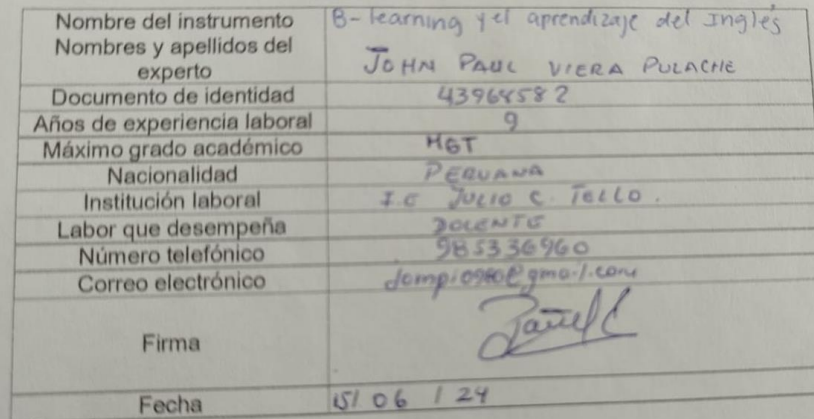 Nombre del instrumento B-learning y el aprendizaje del Inglés
Nombres y apellidos del experto JOHN PAUL VIERA PULACHE
Documento de identidad 43968582
Años de experiencia laboral 9
Máximo grado académico MGT
Nacionalidad PERUANA
Institución laboral I.E JULIO C. TELLO.
Labor que desempeña DOCENTE
Número telefónico 985336960
Correo electrónico @gmail.com
Firma
Fecha 15/ 06 / 24